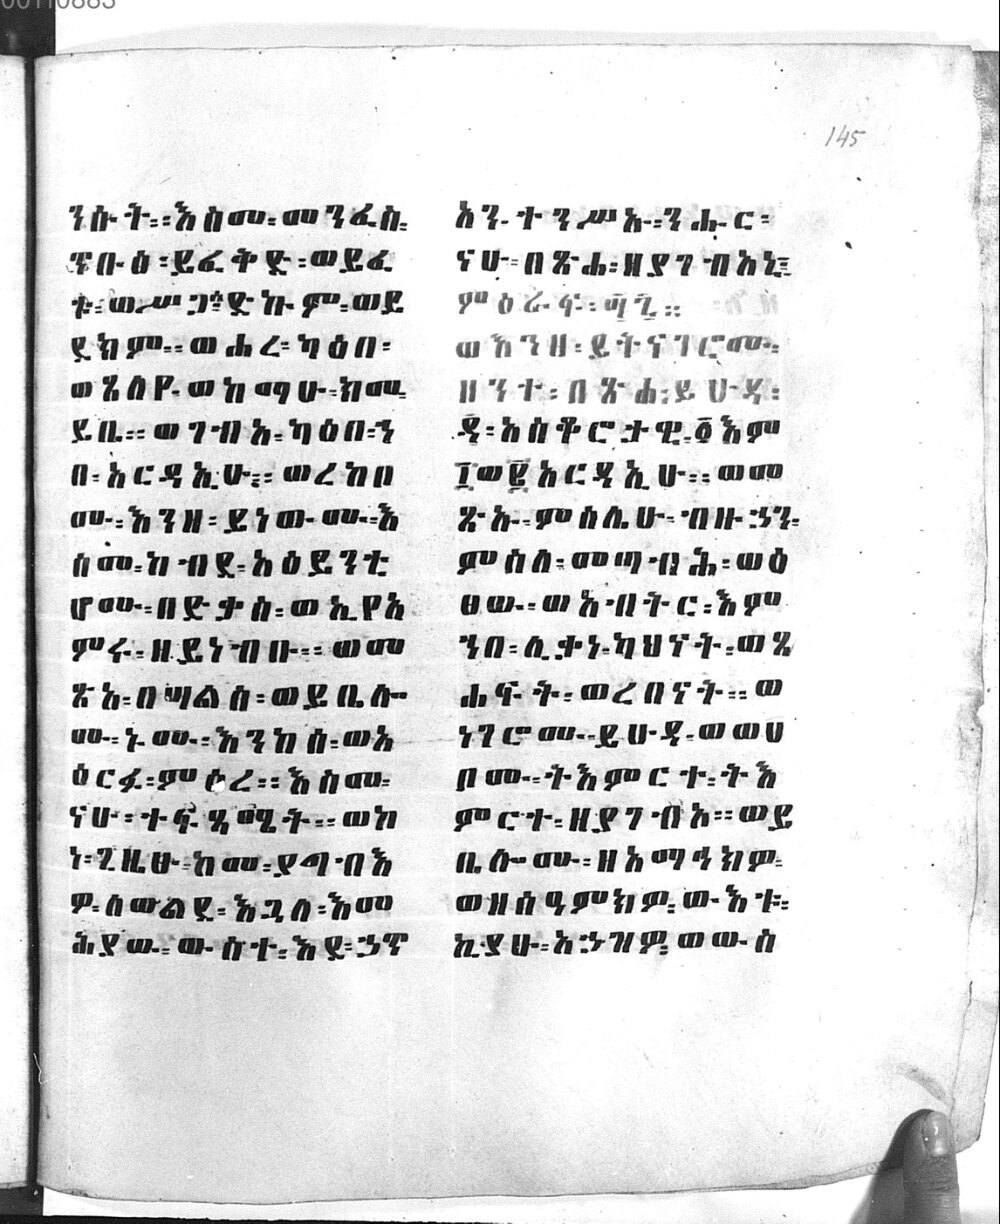 00110883
145
ንሱት ። እስመ ፡ መንፈስ ፡
ጥቡዕ ፡ ይፈቅድ ፡ ወይፈ
ቱ ፡ ወሥጋ፡ ድኩም ፡ ወይ
ደክም ። ወሐረ ፡ ካዕበ ፡
ወጸለየ ፡ ወከማሁ ፡ ክመ ፡
ይቤ ። ወገብአ ፡ ካዕበ ፡ ን
በ ፡ አርዳኢሁ ። ወረከቦ
ሙ ፡ እንዘ ፡ ይነውሙ ፡ እ
ስመ ፡ ከብደ ፡ አዕይንቲ
ሆሙ ፡ በድቃስ ፡ ወኢየአ
ምሩ ፡ ዘይነብቡ ። ወመ
ጽአ ፡ በሣልስ ፡ ወይቤሎ
ሙ ፡ ኑሙ ፡ እንከሰ ፡ ወአ
ዕርፉ ፡ ምዕረ ። እስመ ፡
ናሁ ፡ ተፍጻሜት ። ወከ
ነ ፡ ጊዜሁ ፡ ከመ ፡ ያግብእ
ዎ ፡ ለወልደ ፡ እጓለ ፡ እመ
ሕያው ፡ ውስተ ፡ እደ ፡ ኃጥ
አን ፡ ተንሥኡ ፡ ንሑር ፡
ናሁ ፡ በጽሐ ፡ ዘያገብአኒ ።
ምዕራፍ ፡ ፵፯ ።
ወእንዘ ፡ ይትናገሮሙ ፡
ዘንተ ፡ በጽሐ ፡ ይሁዳ ፡
ዳ ፡ አስቆሮታዊ ፡ ፩እም
፲ወ፪አርዳኢሁ ። ወመ
ጽኡ ፡ ምስሌሁ ፡ ብዙኃን ፡
ምስለ ፡ መጣብሕ ፡ ወዕ
ፀው ፡ ወአብትር ፡ እም
ኀበ ፡ ሊቃነ ፡ ካህናት ፡ ወጸ
ሐፍት ፡ ወረበናት ። ወ
ነገሮሙ ፡ ይሁዳ ፡ ወወሀ
ቦሙ ፡ ትእምርተ ፡ ትእ
ምርተ ፡ ዘያገብአ ። ወይ
ቤሎሙ ፡ ዘአማኅክዎ ፡
ወዘሰዓምክዎ ፡ ውእቱ ፡
ኪያሁ ፡ አኃዝዎ ፡ ወውስ